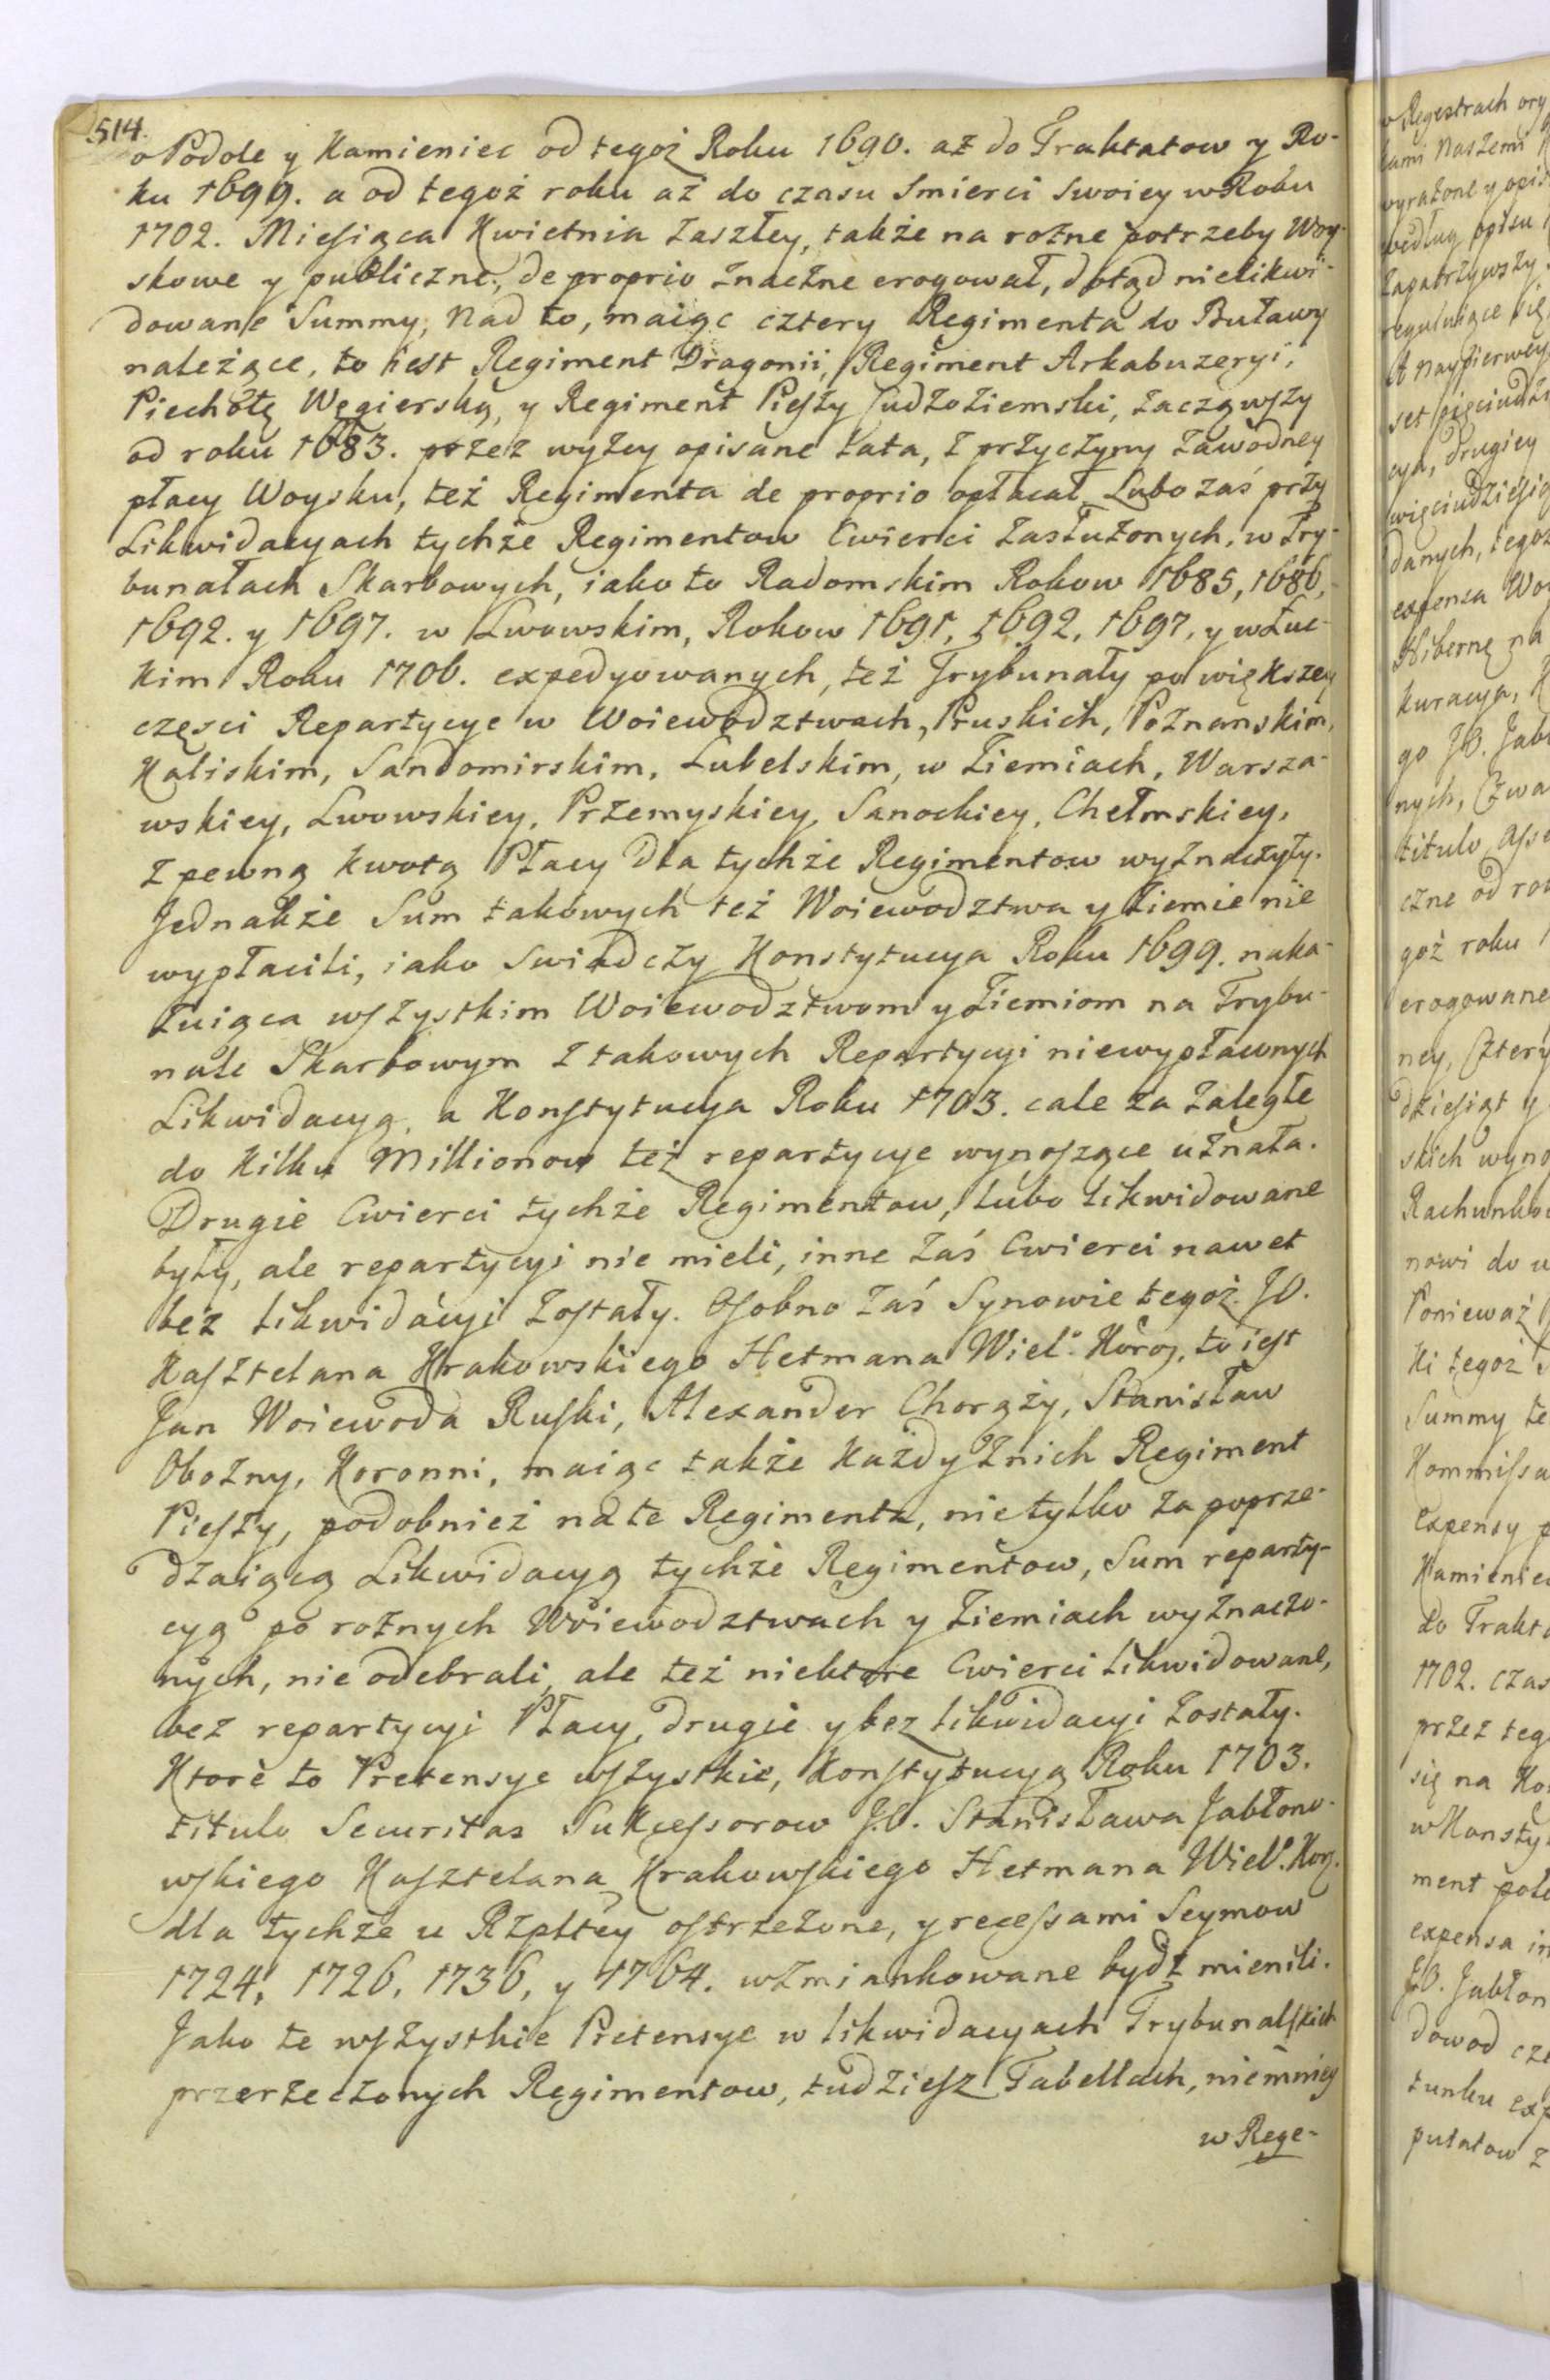 514.
o Podole y Kamieniec od tegoż Roku 1690. aż do Traktatow y Ro-
ku 1699. a od tegoż roku aż do czasu Smierci swoiey w Roku
1702. Miesiąca Kwietnia zaszłey, także na rożne potrzeby Woy-
skowe y publiczne, de proprio znaczne erogował, dotąd nielikwi-
dowane Summy, Nad to, maiąc cztery Regimenta do Buławy
należące, to iest Regiment Dragonii, Regiment Arkabuzeryi,
Piechotę Węgierską, y Regiment Pieszy Cudzoziemski, zacząwszy
od roku 1683. przez wyżey opisane lata, z przyczyny zawodney
płacy Woysku, też Regimenta de proprio opłacał, Lubo zaś przy
Likwidacyach tychże Regimentow Cwierci zasłużonych, w Try-
bunałach Skarbowych, iako to Radomskim Rokow 1685, 1686,
1692. y 1697. w Lwowskim, Rokow 1691, 1692, 1697, y w Łuc-
kim Roku 1706. expedyowanych, też Trybunały po większey
częsci Repartycye w Woiewodztwach, Pruskich, Poznanskim,
Kaliskim, Sandomirskim, Lubelskim, w Ziemiach, Warsza-
wskiey, Lwowskiey, Przemyskiey, Sanockiey, Chełmskiey,
z pewną kwotą Płacy dla tychże Regimentow wyznaczyły.
Jednakże Sum takowych też Woiewodztwa y Ziemie nie
wypłacili, iako swiadczy Konstytucya Roku 1699. naka-
zuiąca wszystkim Woiewodztwom y Ziemiom na Trybu-
nale Skarbowym z takowych Repartycyi niewypławnych
Likwidacyą, a Konstytucya Roku 1703. cale za zaległe
do kilku Millionow też repartycye wynoszące uznała.
Drugie Cwierci tychże Regimentow, lubo likwidowane
były, ale repartycyi nie mieli, inne zaś Cwierci nawet
bez likwidacyi zostały. Osobno zaś Synowie tegoż JO.
Kasztelana Krakowskiego Hetmana Wiel: Koroṅ, to iest
Jan Woiewoda Ruski, Alexander Chorąży, Stanisław
Obozny, Koronni, maiąc także każdy z nich Regiment
Pieszy, podobnież na te Regimenta, nie tylko za poprze-
dzaiącą Likwidacyą tychże Regimentow, Sum reparty-
cyą po rożnych Woiewodztwach y Ziemiach wyznaczo-
nych, nie odebrali, ale też niektore Cwierci likwidowane,
bez repartycyi Płacy, drugie y bez likwidacyi zostały.
Ktore to Pretensye wszystkie, Konstytucyą Roku 1703.
titulo Securitas Sukcessorow J.O. Stanisława Jabłono-
wskiego Kasztelana Krakowskiego Hetmana Wiel. Kor.
dla tychże u Rzpltey ostrzeżone, y recessami Seymow
1724, 1726, 1736, y 1764. wzmiankowane bydź mienili.
Jako te wszystkie Pretensye w likwidacyach Trybunalskich
przerzeczonych Regimentow, tudziesz Tabellach, niemniey
w Rege-
w Regestrach ory
kami naszemi
wyrażone y opis
według opisu
zapatrzywszy
reguluiące się
A naypierwey
set pięciudzi
cya, drugiey
więciudziesią
danych, tegoż
expensa Woy
Hibernę na
kuracya, K
go JO. Jabł
nych, Czwa
titulo Asse
czne od rok
goż roku 1
erogowane
ney, Cztery
dziesiąt y
skich wyno
Rachunko
nowi do u
Ponieważ
ki tegoż
Summy te
Kommissa
Expensy p
Kamieniec
do Trakta
1702. czas
przez teg
się na Ko
w Konsty
ment pole
expensa in
JO. Jabłon
dowod cze
tunku exp
putatow z